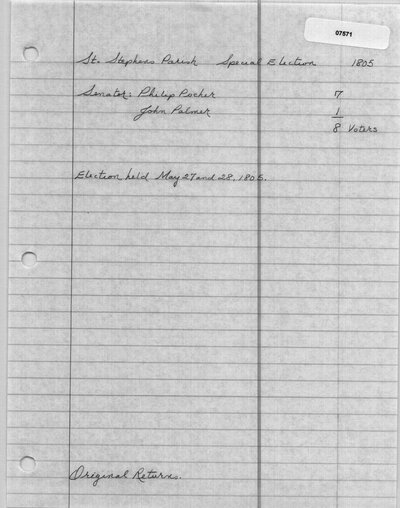 07571
St. Stephens Parish Special Election 1805
Senator: Philip Porcher 7
John Palmer 1
8 Voters
Election held May 27 and 28, 1805.
Original Returns.